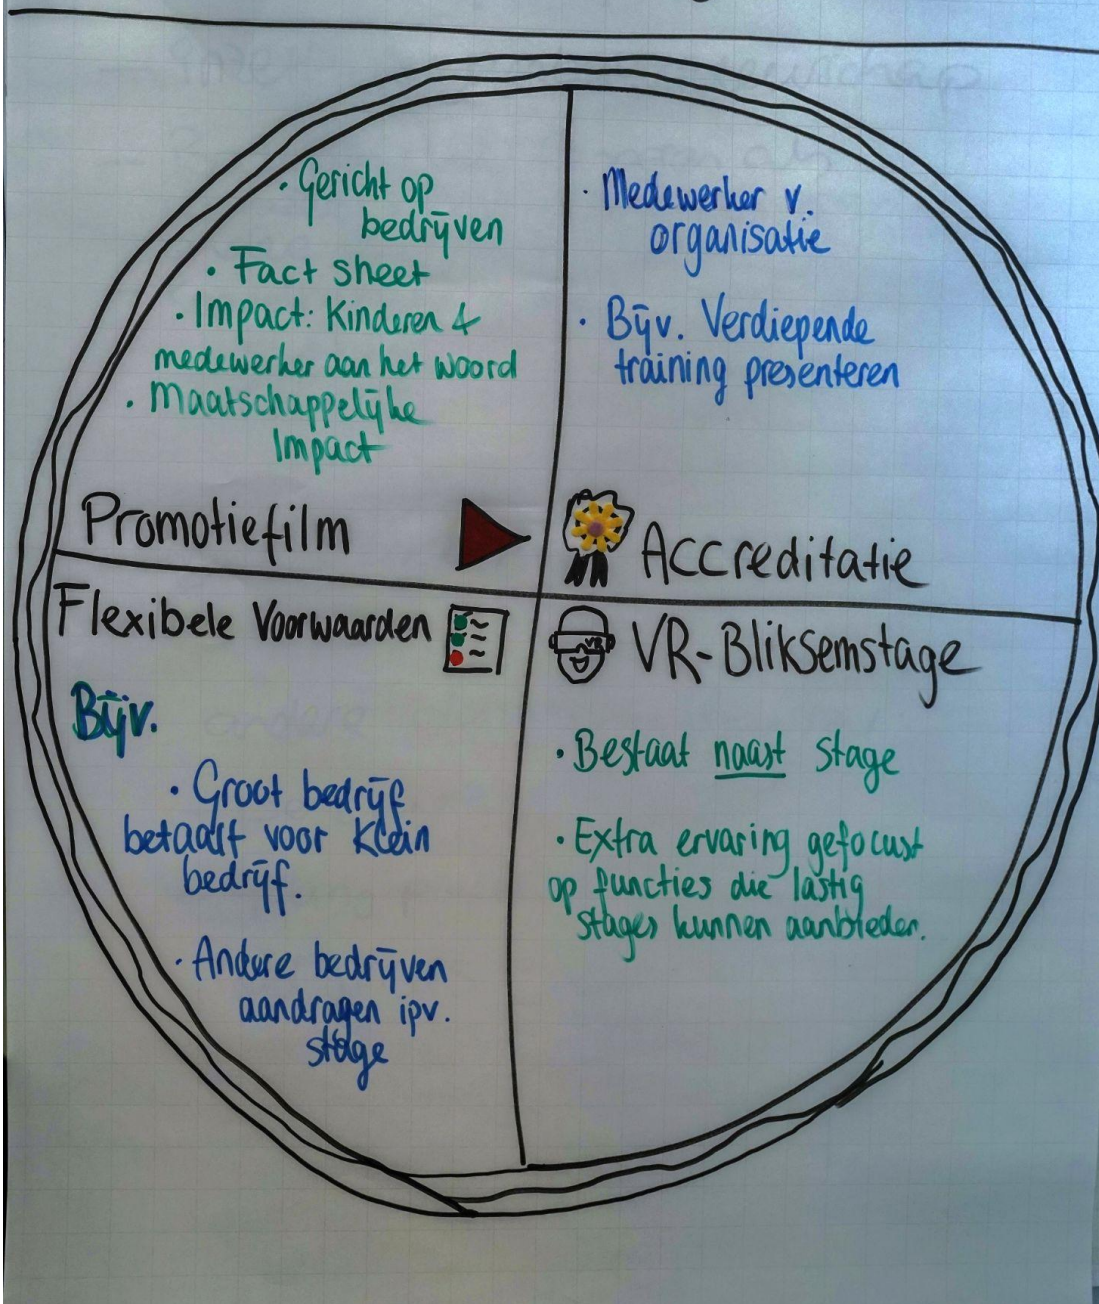 · Gericht op
bedrijven
· Fact sheet
· Impact: Kinderen &
medewerker aan het woord
· Maatschappelijke
Impact
Promotiefilm
· Medewerker v.
organisatie
· Bijv. Verdiepende
training presenteren
Accreditatie
Flexibele Voorwaarden
Bijv.
· Groot bedrijf
betaalt voor Klein
bedrijf.
· Andere bedrijven
aandragen ipv.
stage
VR
VR-Bliksemstage
· Bestaat naast stage
· Extra ervaring gefocust
op functies die lastig
stages kunnen aanbieden.